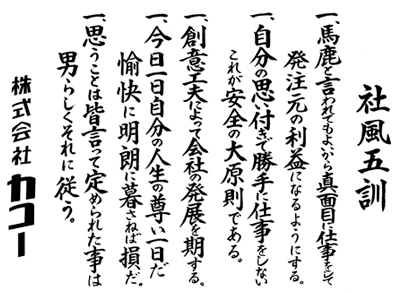 社風五訓
一、馬鹿と言われてもよいから真面目に仕事をして
発注元の利益になるようにする。
一、自分の思い付きで勝手に仕事をしない
これが安全の大原則である。
一、創意工夫によって会社の発展を期する。
一、今日一日自分の人生の尊い一日だ
愉快に明朗に暮さねば損だ。
一、思うことは皆言って定められた事は
男らしくそれに従う。
株式会社カコー